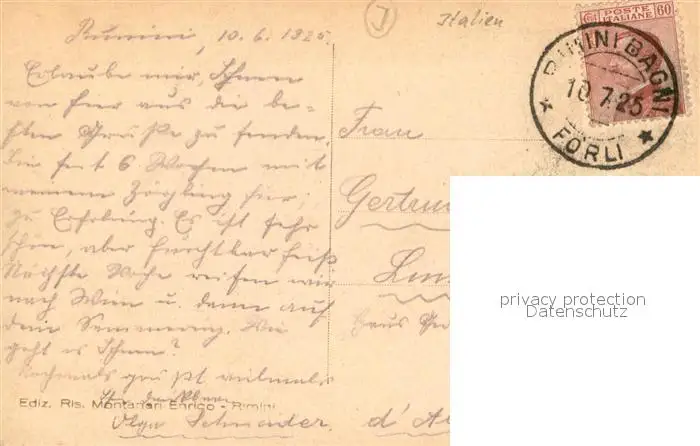 Italien
POSTE ITALIANE 60
RIMINI BAGNI
10.7.25
FORLI
Rimini, 10.6.1925.
Erlaube mir, Ihnen
von hier aus die be-
sten Grüße zu senden.
Bin seit 6 Wochen mit
meinem Zögling hier,
zu Erholung. Es ist sehr
schön, aber furchtbar heiß
Nächste Woche reisen wir
nach Wien u. dann auf
dem Semmering. Wie
geht es Ihnen?
Nochmals grüßt vielmals
Ediz. Ris. Montanari Enrico - Rimini
Olga Schneider.
Frau
Gertrud
Linz
Haus
d'
privacy protection
Datenschutz